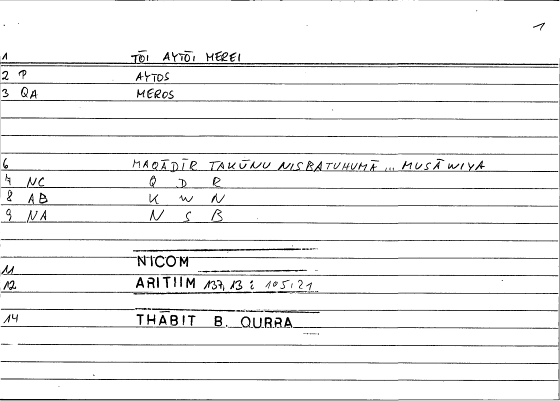 1
1 TŌI AYTŌI MEREI
2 P AYTOS
3 QA MEROS
6 MAQĀDĪR TAKŪNU NISBATUHUMĀ ... MUSĀWIYA
7 NC Q D R
8 AB K W N
9 NA N S B
11 NICOM
12 ARITIIM 137,13 : 105,21
14 THĀBIT B. QURRA